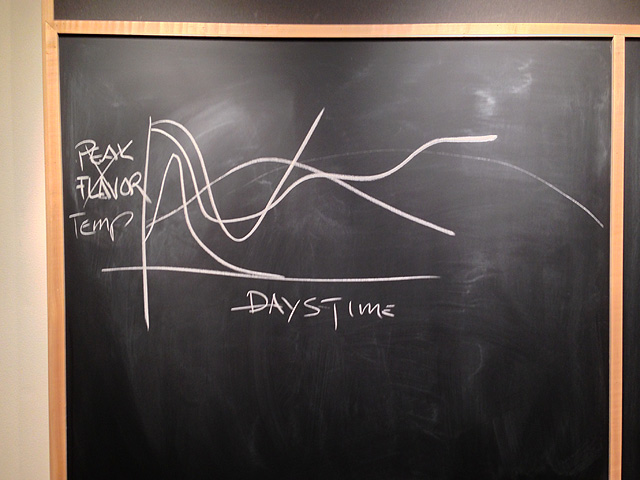 PEAK
FLAVOR
Temp
DAYS TIME